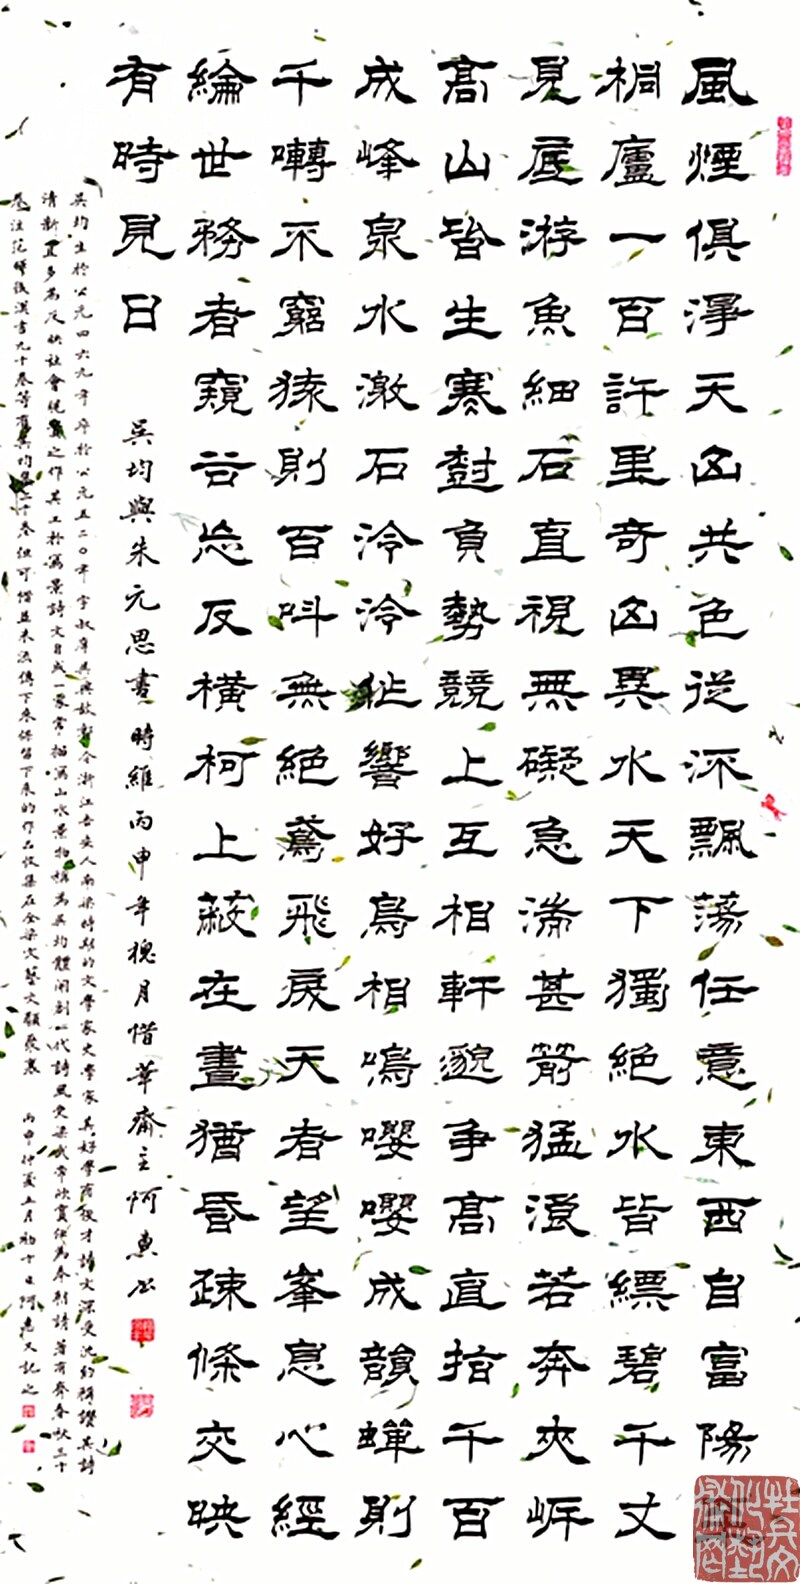 風煙俱淨天山共色從流飄蕩任意東西自富陽至
桐廬一百許里奇山異水天下獨絕水皆縹碧千丈
見底游魚細石直視無礙急湍甚箭猛浪若奔夾岸
高山皆生寒樹負勢競上互相軒邈爭高直指千百
成峰泉水激石泠泠作響好鳥相鳴嚶嚶成韻蟬則
千囀不窮猿則百叫無絕鳶飛戾天者望峯息心經
綸世務者窺谷忘反橫柯上蔽在晝猶昏疎條交映
有時見日
吳均與朱元思書時維丙申年槐月惜華齋主阿惠
吳均生於公元四六九年卒於公元五二〇年字叔庠吳興故鄣今浙江吉安人南梁時期的文學家史學家其好學有俊才詩文深受沈約稱讚其詩
清新且多為反映社會現實之作其工於寫景詩文自成一家常描寫山水景物稱為吳均體開創一代詩風受梁武帝欣賞任為奉朝請著有齊春秋三十
卷注范曄後漢書九十卷等有吳均集二十卷但可惜並未流傳下來保留下來的作品收集在全梁文藝文類聚裏 丙申仲夏五月初十日阿惠又記之